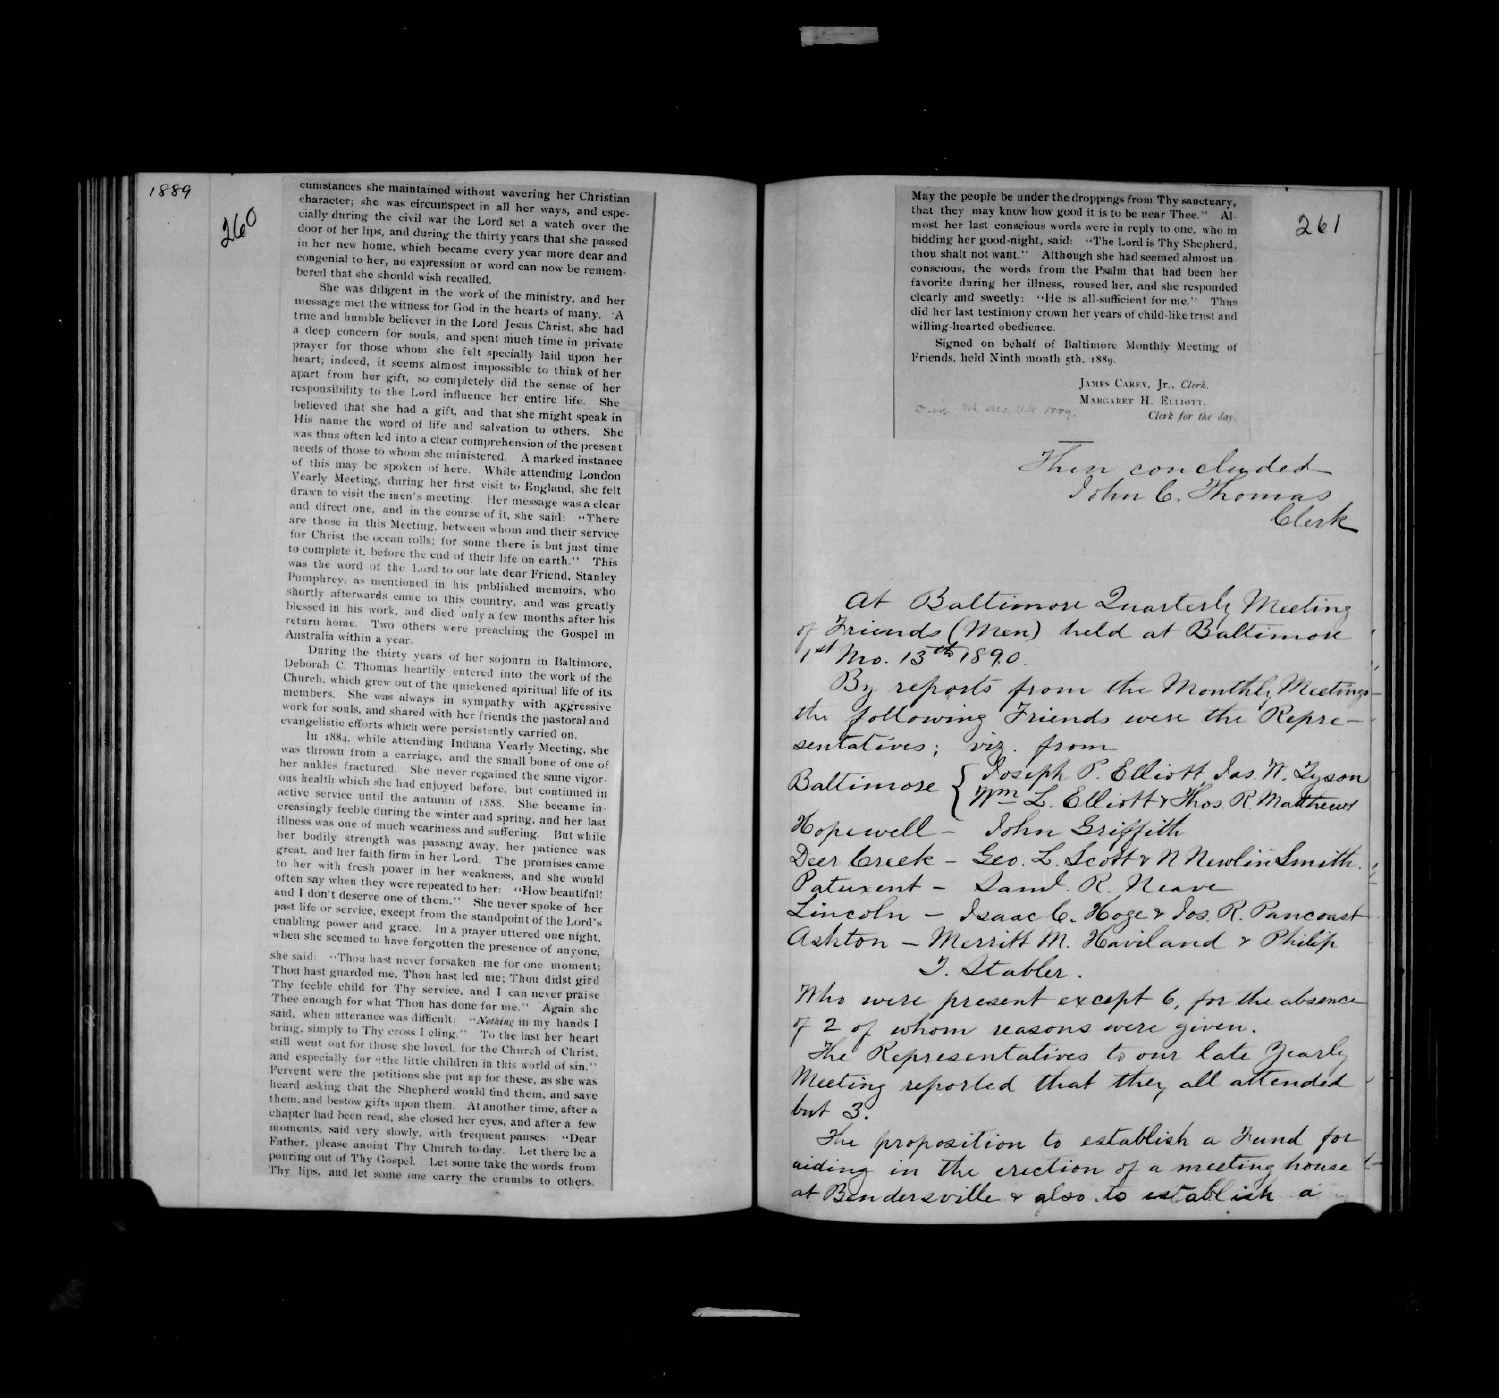 1889
260
cumstances she maintained without wavering her Christian
character; she was circumspect in all her ways, and espe-
cially during the civil war the Lord set a watch over the
door of her lips, and during the thirty years that she passed
in her new home, which became every year more dear and
congenial to her, no expression or word can now be remem-
bered that she should wish recalled.
She was diligent in the work of the ministry, and her
message met the witness for God in the hearts of many. A
true and humble believer in the Lord Jesus Christ, she had
a deep concern for souls, and spent much time in private
prayer for those whom she felt specially laid upon her
heart; indeed, it seems almost impossible to think of her
apart from her gift, so completely did the sense of her
responsibility to the Lord influence her entire life. She
believed that she had a gift, and that she might speak in
His name the word of life and salvation to others. She
was thus often led into a clear comprehension of the present
needs of those to whom she ministered. A marked instance
of this may be spoken of here. While attending London
Yearly Meeting, during her first visit to England, she felt
drawn to visit the men's meeting. Her message was a clear
and direct one, and in the course of it, she said: "There
are those in this Meeting, between whom and their service
for Christ the ocean rolls; for some there is but just time
to complete it, before the end of their life on earth." This
was the word of the Lord to our late dear Friend, Stanley
Pumphrey, as mentioned in his published memoirs, who
shortly afterwards came to this country, and was greatly
blessed in his work, and died only a few months after his
return home. Two others were preaching the Gospel in
Australia within a year.
During the thirty years of her sojourn in Baltimore,
Deborah C. Thomas heartily entered into the work of the
Church, which grew out of the quickened spiritual life of its
members. She was always in sympathy with aggressive
work for souls, and shared with her friends the pastoral and
evangelistic efforts which were persistently carried on.
In 1884, while attending Indiana Yearly Meeting, she
was thrown from a carriage, and the small bone of one of
her ankles fractured. She never regained the same vigor-
ous health which she had enjoyed before, but continued in
active service until the autumn of 1888. She became in-
creasingly feeble during the winter and spring, and her last
illness was one of much weariness and suffering. But while
her bodily strength was passing away, her patience was
great, and her faith firm in her Lord. The promises came
to her with fresh power in her weakness, and she would
often say when they were repeated to her: "How beautiful!
and I don't deserve one of them." She never spoke of her
past life or service, except from the standpoint of the Lord's
enabling power and grace. In a prayer uttered one night,
when she seemed to have forgotten the presence of anyone,
she said: "Thou hast never forsaken me for one moment;
Thou hast guarded me, Thou hast led me; Thou didst gird
Thy feeble child for Thy service, and I can never praise
Thee enough for what Thou has done for me." Again she
said, when utterance was difficult: "Nothing in my hands I
bring, simply to Thy cross I cling." To the last her heart
still went out for those she loved, for the Church of Christ,
and especially for "the little children in this world of sin."
Fervent were the petitions she put up for these, as she was
heard asking that the Shepherd would find them, and save
them, and bestow gifts upon them. At another time, after a
chapter had been read, she closed her eyes, and after a few
moments, said very slowly, with frequent pauses: "Dear
Father, please anoint Thy Church to-day. Let there be a
pouring out of Thy Gospel. Let some take the words from
Thy lips, and let some one carry the crumbs to others.
261
May the people be under the droppings from Thy sanctuary,
that they may know how good it is to be near Thee." Al-
most her last conscious words were in reply to one, who in
bidding her good-night, said: "The Lord is Thy Shepherd,
thou shalt not want." Although she had seemed almost un-
conscious, the words from the Psalm that had been her
favorite during her illness, roused her, and she responded
clearly and sweetly: "He is all-sufficient for me." Thus
did her last testimony crown her years of child-like trust and
willing-hearted obedience.
Signed on behalf of Baltimore Monthly Meeting of
Friends, held Ninth month 5th, 1889.
JAMES CAREY, JR., Clerk.
MARGARET H. ELLIOTT,
Clerk for the day.
Then concluded
John C. Thomas
Clerk
At Baltimore Quarterly Meeting
of Friends (Men) held at Baltimore
1st Mo. 13th 1890.
By reports from the Monthly Meetings
the following Friends were the Repre-
sentatives; viz. from
Baltimore { Joseph P. Elliott, Jas. W. Tyson
Wm L. Elliott & Thos. R. Matthews
Hopewell - John Griffith
Deer Creek - Geo. L. Scott & N Newlin Smith.
Patuxent - Saml. R. Neave
Lincoln - Isaac C. Hoge & Jos. R. Pancoast
Ashton - Merritt M. Haviland & Philip
T. Stabler.
Who were present except 6, for the absence
of 2 of whom reasons were given.
The Representatives to our late Yearly
Meeting reported that they all attended
but 3.
The proposition to establish a Fund for
aiding in the erection of a meeting house
at Bendersville & also to establish a